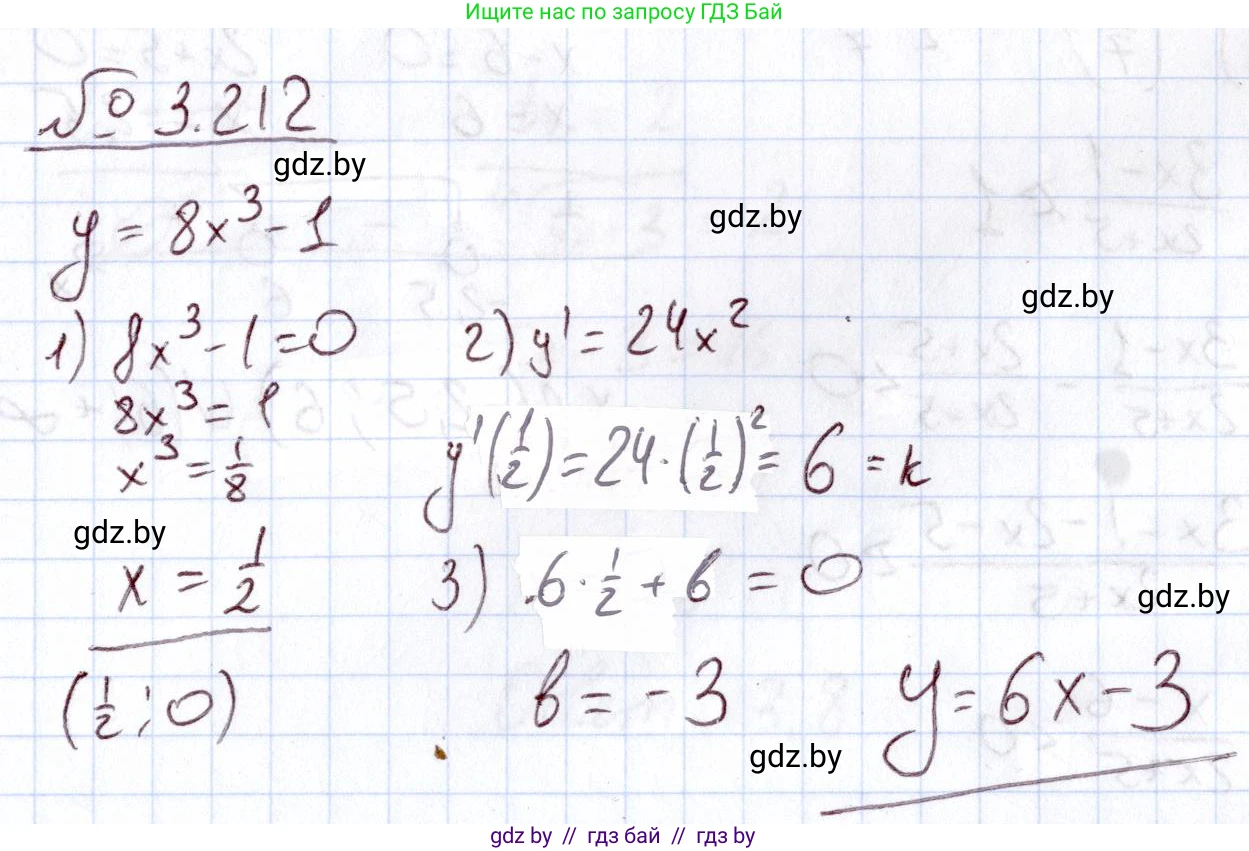 Ищите нас по запросу ГДЗ Бай
№ 3.212
gdz.by
y = 8x³ - 1
gdz.by
gdz.by
1) 8x³ - 1 = 0
8x³ = 1
x³ = 1/8
gdz.by
x = 1/2
(1/2; 0)
2) y' = 24x²
y'(1/2) = 24·(1/2)² = 6 = k
3) 6·1/2 + b = 0
gdz.by
b = -3
y = 6x - 3
gdz.by
gdz.by // гдз бай // гдз by